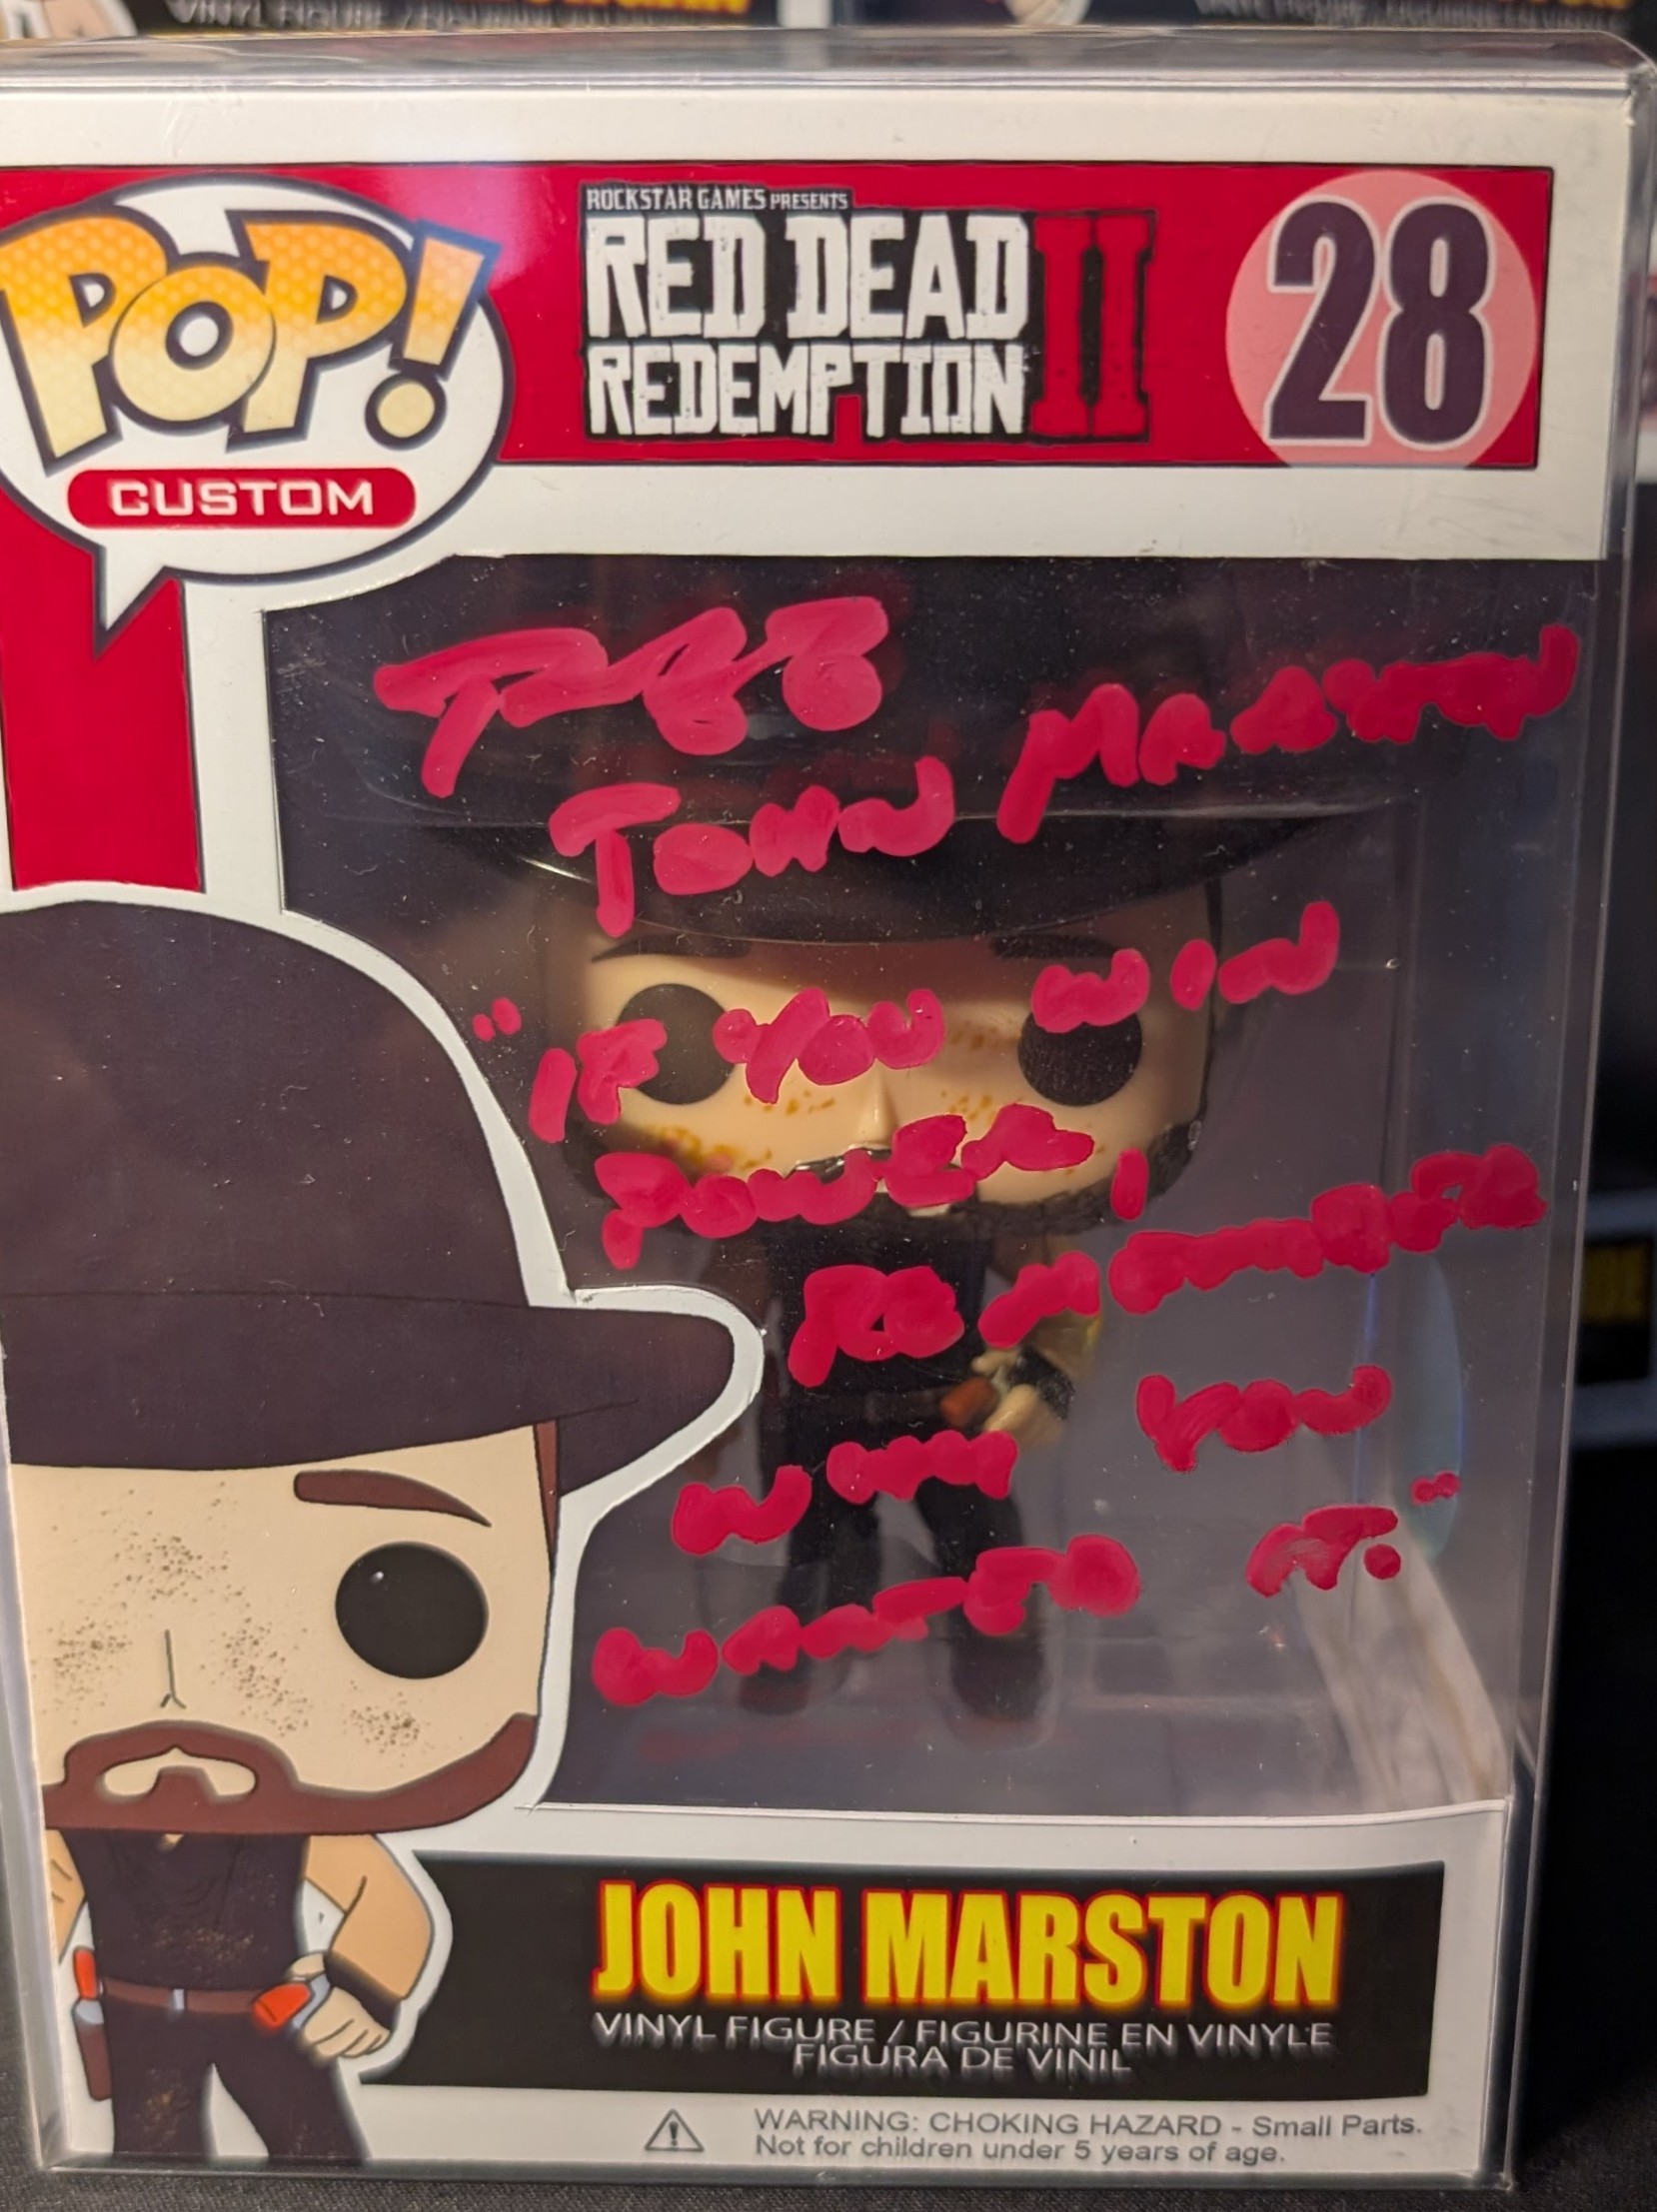 VINYL FIGURE / FIGURINE EN VINYLE
POP!
CUSTOM
ROCKSTAR GAMES PRESENTS
RED DEAD
REDEMPTION II
28
JOHN MARSTON
"IF YOU WIN
POWER,
REMEMBER
WHY YOU
WANTED IT."
JOHN MARSTON
VINYL FIGURE / FIGURINE EN VINYLE
FIGURA DE VINIL
WARNING: CHOKING HAZARD - Small Parts.
Not for children under 5 years of age.